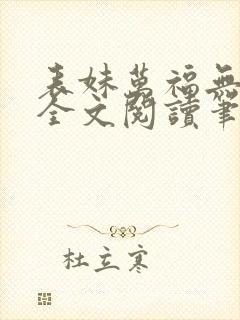 表妹萬福無
全文閱讀筆
杜立寒